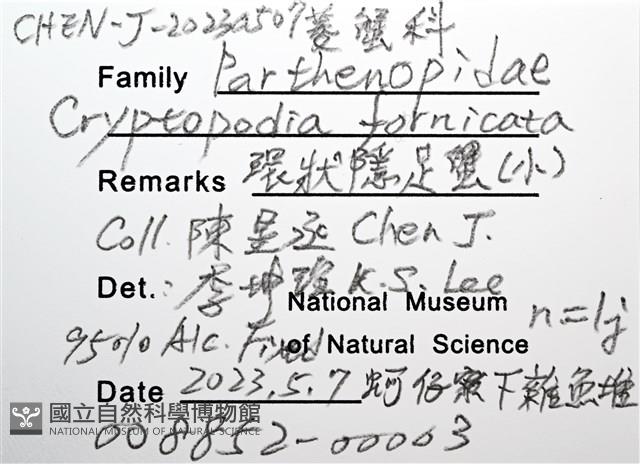 CHEN-J-20230507 菱蟹科
Family Parthenopidae
Cryptopodia fornicata
Remarks 環狀隱足蟹(小)
Coll. 陳昱丞 Chen J.
Det.: 李坤瑄 K.S. Lee
National Museum
95% Alc. Fixed of Natural Science n=1j
Date 2023.5.7 蚵仔寮下雜魚堆
國立自然科學博物館
NATIONAL MUSEUM OF NATURAL SCIENCE
008852-00003